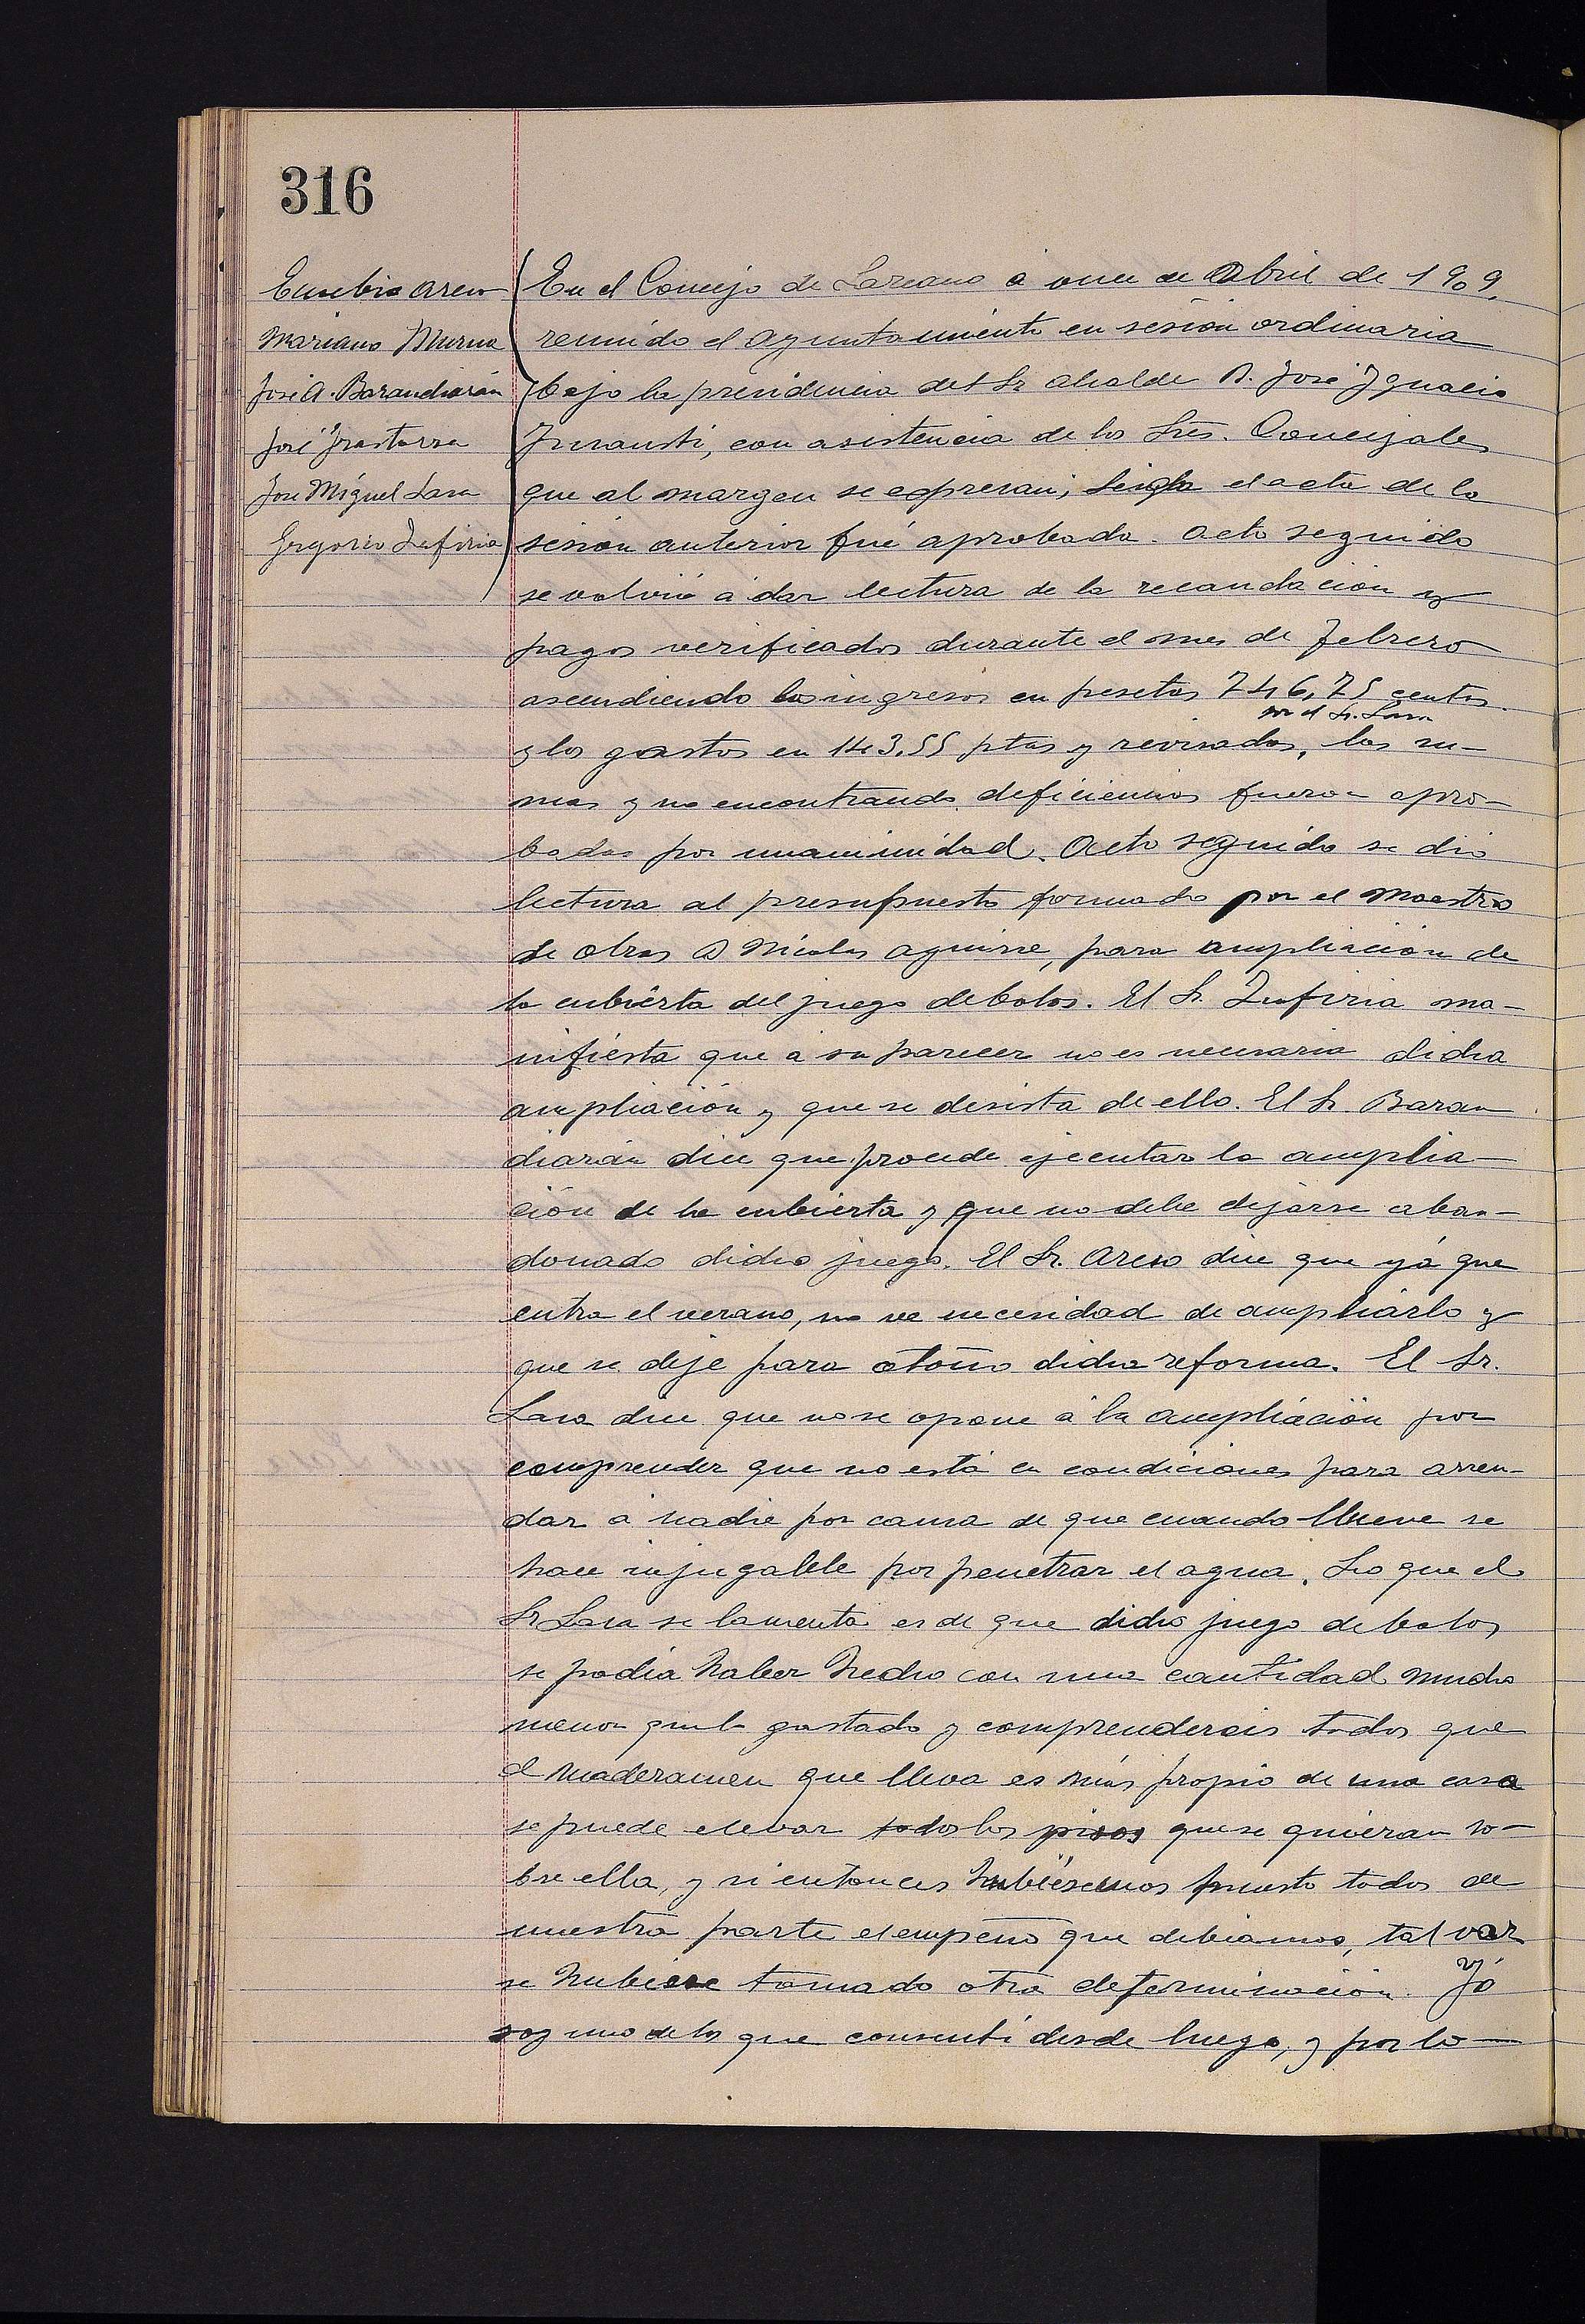 316
Eusebio Areso
Mariano Murua
José A. Barandiarán
José Irastorza
José Miguel Lasa
Gregorio Zufiria
En el Concejo de Lazcano á once de Abril de 1909,
reunido el Ayuntamiento en sesión ordinaria
bajo la presidencia del Sr Alcalde D. José Ygnacio
Yurausti, con asistencia de los Srēs. Concejales
que al margen se expresan; leida el acta de la
sesión anterior fué aprobada. Acto seguido
se volvió á dar lectura de la recaudación y
pagos verificados durante el mes de Febrero
ascendiendo los ingresos en pesetas 746,75 centos.
y los gastos en 143,55 ptas y revisados, las su-
por el Sr. Lasa
mas y no encontrando deficiencias fueron apro-
badas por unanimidad. Acto seguido se dió
lectura al presupuesto formado por el Maestro
de obras D Nicolas Aguirre, para ampliación de
la cubierta del juego de bolos. El Sr. Zufiria ma-
nifiesta que á su parecer no es necesaria dicha
ampliación y que se desista de ello. El Sr. Baran
diarán dice que procede ejecutar la amplia-
ción de la cubierta y que no debe dejarse aban-
donado dicho juego. El Sr. Areso dice que yá que
entra el verano, no ve necesidad de ampliarlo y
que se deje para otoño dicha reforma. El Sr.
Lasa dice que no se opone á la ampliación por
comprender que no está en condiciones para arren-
dar á nadie por causa de que cuando llueve se
hace injugable por penetrar el agua. Lo que el
Sr Lasa se lamenta es de que dicho juego de bolos
se podia haber hecho con una cantidad mucho
menor que lo gastado y comprendereis todos que
el maderamen que lleva es más propio de una casa
se puede elevar todos los pisos que se quieran so-
bre ella, y si entonces hubiésemos puesto todos de
nuestra parte el empeño que debiamos, tal vez
se hubiese tomado otra determinación. Yó
soy uno de los que consentí desde luego, y por lo